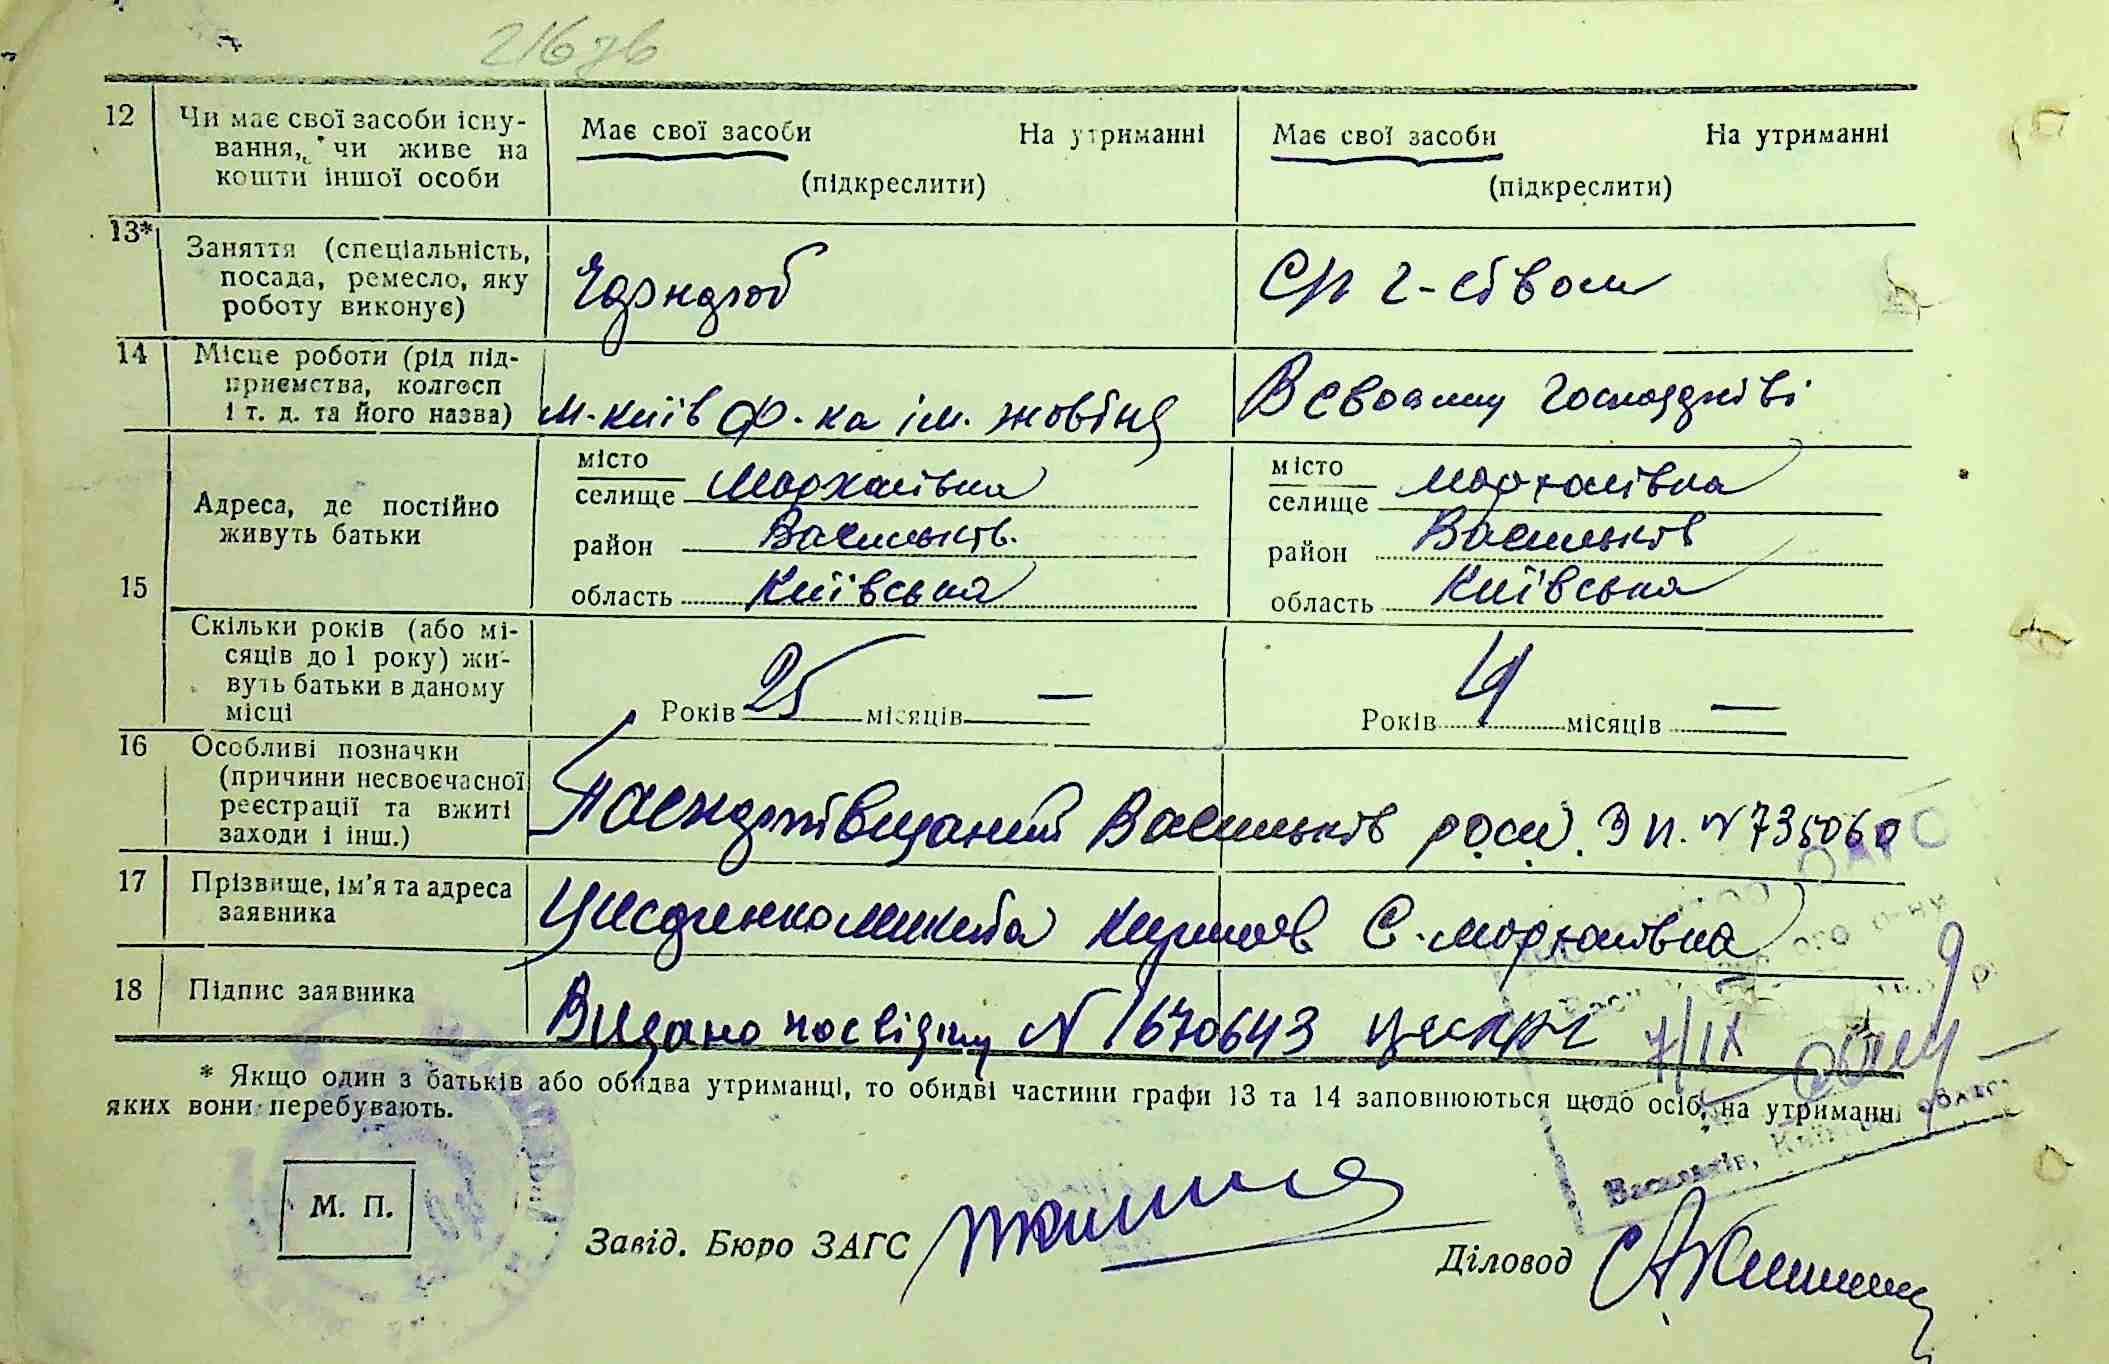 216 зв
12 Чи має свої засоби існу- Має свої засоби На утриманні Має свої засоби На утриманні
вання, чи живе на
кошти іншої особи (підкреслити) (підкреслити)
13* Заняття (спеціальність,
посада, ремесло, яку
роботу виконує) г-ством
14 Місце роботи (рід під-
приємства, колгосп
і т. д. та його назва) м. Київ ф-ка ім. Жовтня В своєму господрстві
місто місто
селище Мархалівка селище Мархалівка
Адреса, де постійно
живуть батьки
район Васильків. район Васильків
15
область Київська область Київська
Скільки років (або мі-
сяців до 1 року) жи-
вуть батьки в даному
місці Років 25 місяців — Років 4 місяців —
16 Особливі позначки
(причини несвоєчасної
реєстрації та вжиті
заходи і інш.) Васильків З П. № 735060
17 Прізвище, ім'я та адреса
заявника Микита С. Мархалівка
18 Підпис заявника
Видано посвідку № 1670643 7/IX
* Якщо один з батьків або обидва утриманці, то обидві частини графи 13 та 14 заповнюються щодо осіб, на утриманні
яких вони перебувають.
Васильків,
М. П.
Завід. Бюро ЗАГС Діловод